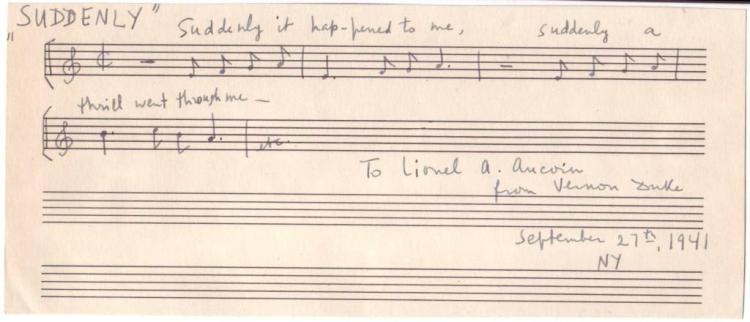 „SUDDENLY"
Suddenly it hap-pened to me, suddenly a
thrill went through me —
etc.
To Lionel A. Aucoin
from Vernon Duke
September 27th, 1941
NY